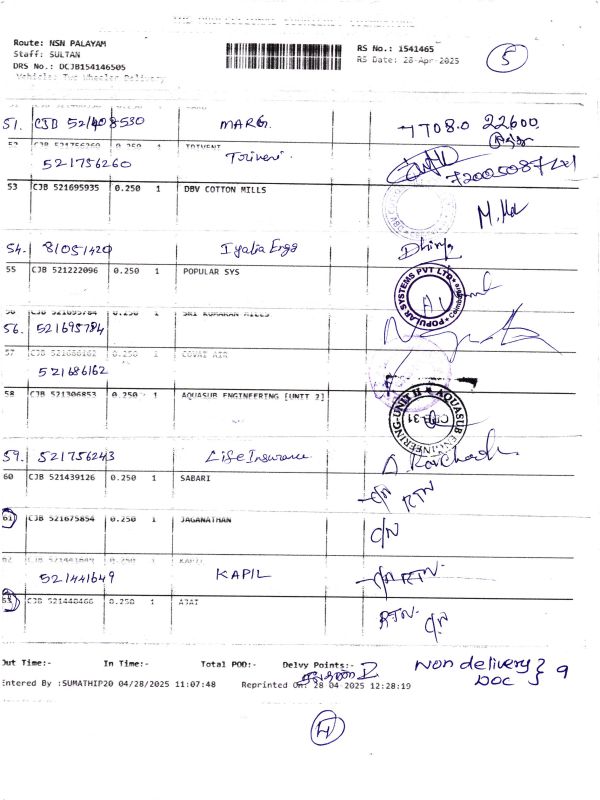 THE PROFESSIONAL COURIERS
Route: NSN PALAYAM
Staff: SULTAN
DRS No.: DCJB154146505
Vehicle: Two Wheeler Delivery
RS No.: 1541465
RS Date: 28-Apr-2025
5
51. CJB 521408530 MARG. 77080 22600
52 CJB 521756260 0.250 1 TRIVENI
521756260 Triveni.
53 CJB 521695935 0.250 1 DBV COTTON MILLS
54. 81051420 Iyalia Engg Dhivya
55 CJB 521222096 0.250 1 POPULAR SYS
POPULAR SYSTEMS PVT LTD
56 CJB 521695784 0.250 1 SRI KUMARAN MILLS
56. 521695784
57 CJB 521686162 0.250 1 COVAI AIR
521686162
58 CJB 521306853 0.250 1 AQUASUB ENGINEERING [UNIT 2]
AQUASUB ENGINEERING-UNIT II
CJB-31
59. 521756243 Life Insurance
60 CJB 521439126 0.250 1 SABARI
C/N RTN
61 CJB 521675854 0.250 1 JAGANATHAN
C/N
62 CJB 521441649 0.250 1 KAPIL
521441649 KAPIL C/N RTN
63 CJB 521440466 0.250 1 AJAY
RTN. C/N
Out Time:- In Time:- Total POD:- Delvy Points:-
Non delivery } 9
Doc
Entered By :SUMATHIP20 04/28/2025 11:07:48 Reprinted On: 28 04 2025 12:28:19
4